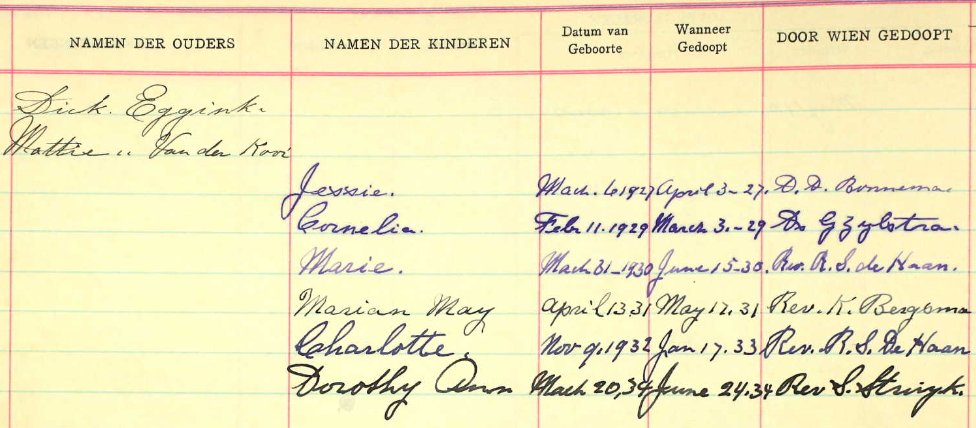 NAMEN DER OUDERS NAMEN DER KINDEREN Datum van Geboorte Wanneer Gedoopt DOOR WIEN GEDOOPT
Dick. Eggink.
Mattie " Van der Kooi
Jessie. Mach. 6.1927 April 3-27. D. D. Bonnema.
Cornelia. Febr 11.1929 March 3.-29 Ds G Zylstra.
Marie. Mach 31-1930 June 15-30. Rev. R. S. de Haan.
Marian May April 13,31 May 17.31 Rev. K. Bergsma
Charlotte. Nov 9.1932 Jan 17.33 Rev. R. S. De Haan
Dorothy Ann Mach 20,34 June 24.34 Rev S. Struyk.